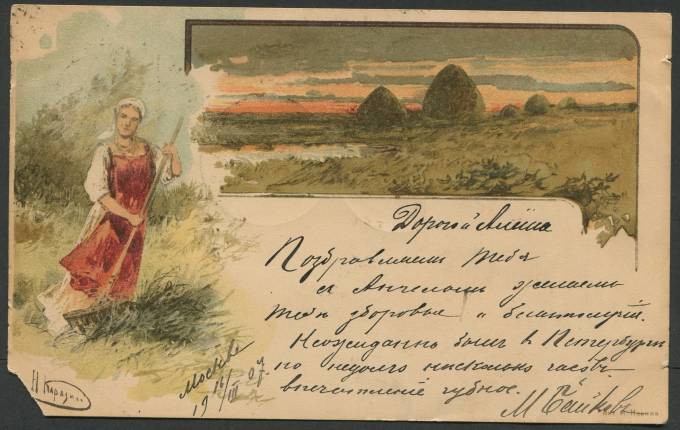 Дорогой Алёша
Поздравляем тебя
с Ангелом желаем
тебе здоровья и
Неожиданно были в Петербурге
но недолго несколько часов
впечатление чудное.
М Байков
Москва
19 16/III 07.
Н Каразин